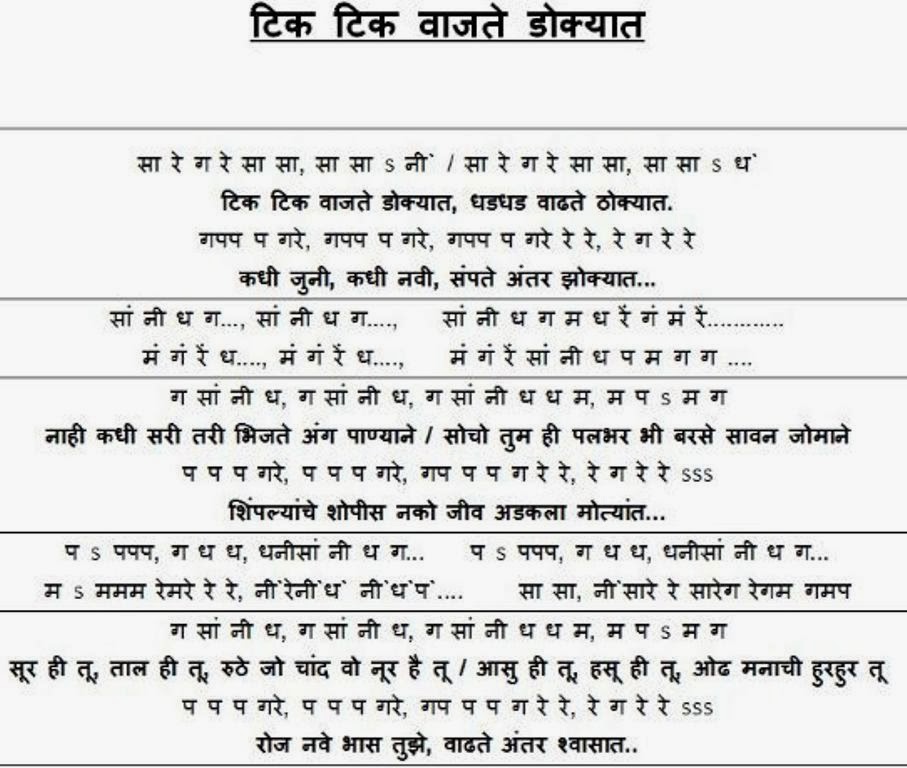 टिक टिक वाजते डोक्यात
सा रे ग रे सा सा, सा सा s नी` / सा रे ग रे सा सा, सा सा s ध`
टिक टिक वाजते डोक्यात, धडधड वाढते ठोक्यात.
गपप प गरे, गपप प गरे, गपप प गरे रे रे, रे ग रे रे
कधी जुनी, कधी नवी, संपते अंतर झोक्यात...
सां नी ध ग..., सां नी ध ग...., सां नी ध ग म ध रें गं मं रें............
मं गं रें ध...., मं गं रें ध...., मं गं रें सां नी ध प म ग ग ....
ग सां नी ध, ग सां नी ध, ग सां नी ध ध म, म प s म ग
नाही कधी सरी तरी भिजते अंग पाण्याने / सोचो तुम ही पलभर भी बरसे सावन जोमाने
प प प गरे, प प प गरे, गप प प ग रे रे, रे ग रे रे sss
शिंपल्यांचे शोपीस नको जीव अडकला मोत्यांत...
प s पपप, ग ध ध, धनीसां नी ध ग... प s पपप, ग ध ध, धनीसां नी ध ग...
म s ममम रेमरे रे रे, नी`रेनी`ध` नी`ध`प`.... सा सा, नी`सारे रे सारेग रेगम गमप
ग सां नी ध, ग सां नी ध, ग सां नी ध ध म, म प s म ग
सूर ही तू, ताल ही तू, रुठे जो चांद वो नूर है तू / आसु ही तू, हसू ही तू, ओढ मनाची हुरहुर तू
प प प गरे, प प प गरे, गप प प ग रे रे, रे ग रे रे sss
रोज नवे भास तुझे, वाढते अंतर श्वासात..